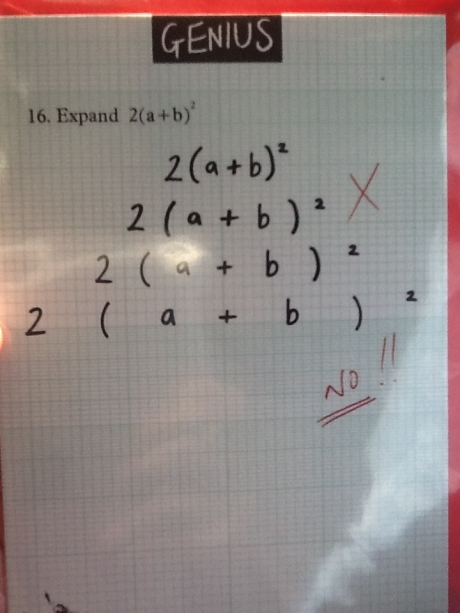 GENIUS
16. Expand 2(a+b)²
2(a+b)²
2 ( a + b ) ²
2 ( a + b ) ²
2 ( a + b ) ²
NO!!